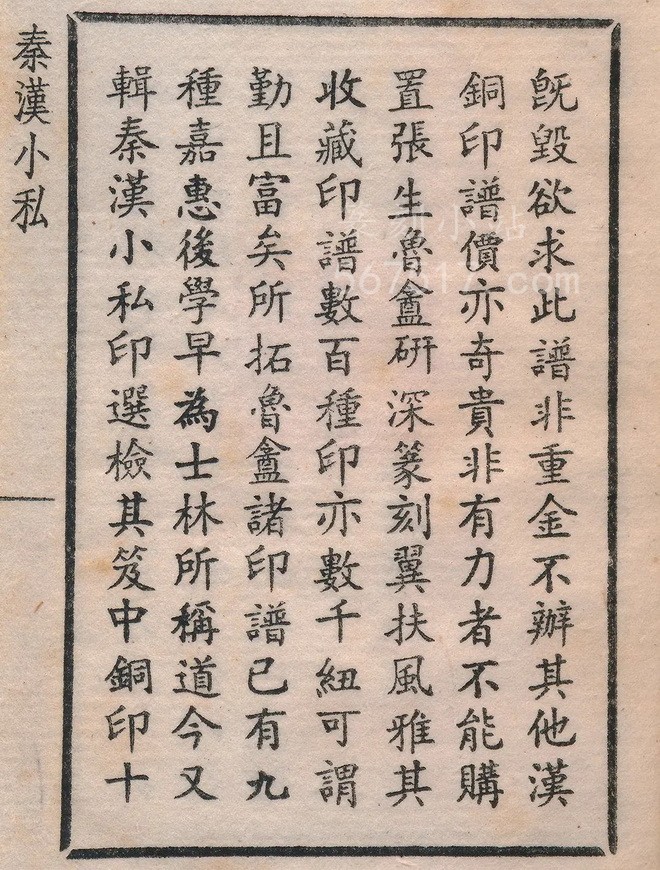 既毀欲求此譜非重金不辦其他漢
銅印譜價亦奇貴非有力者不能購
置張生魯盦研深篆刻翼扶風雅其
收藏印譜數百種印亦數千紐可謂
勤且富矣所拓魯盦諸印譜已有九
種嘉惠後學早為士林所稱道今又
輯秦漢小私印選檢其笈中銅印十
秦漢小私